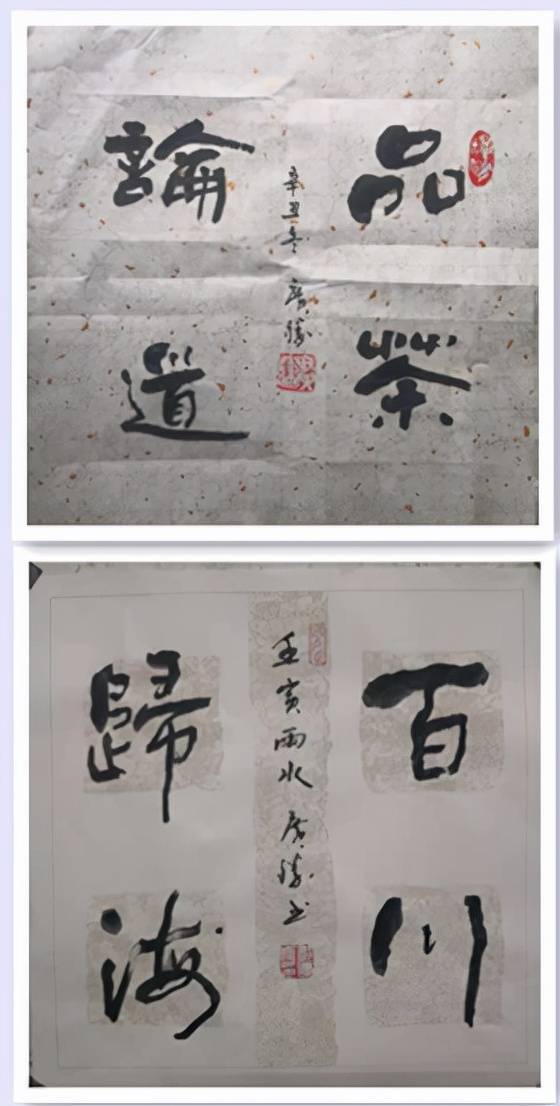 品茶
論道
辛丑冬
百川
歸海
壬寅雨水
书